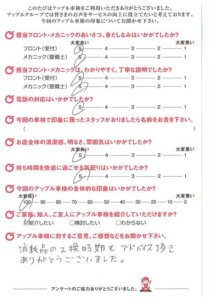 このたびはアップル車検をご利用いただきありがとうございました。
アップルグループでは皆さまのお声をサービスの向上に役立てたいと考えております。
今回のアップル車検の印象についてお聞かせ下さい。
担当フロント・メカニックのあいさつ、身だしなみはいかがでしたか?
大変良い 大変悪い
フロント(受付) 5 4 3 2 1
メカニック(整備士) 5 4 3 2 1
担当フロント・メカニックは、わかりやすく、丁寧な説明でしたか?
フロント(受付) 5 4 3 2 1
メカニック(整備士) 5 4 3 2 1
電話の対応はいかがでしたか?
5 4 3 2 1
今回の車検で印象に残ったスタッフがおりましたら名前をお書き下さい。
( )
お店全体の清潔感、明るさ、雰囲気はいかがでしたか?
大変良い 大変悪い
5 4 3 2 1
待ち時間を快適に過ごせる気配りはいかがでしたか?
5 4 3 2 1
今回のアップル車検の全体的な印象はいかがでしたか?
大変良い 大変悪い
100 90 80 70 60 50 40 30 20 10 0
ご家族、知人、ご友人にアップル車検を紹介していただけますか?
紹介したい 検討したい わからない
アップル車検に対するご意見、ご感想などをお聞かせ下さい。
消耗品の交換時期もアドバイス頂き
ありがとうございました。
アンケートのご協力ありがとうございました。